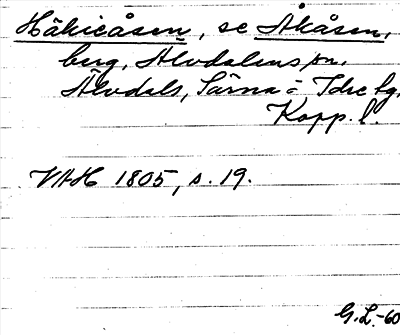 Häkieåsen, se Åkåsen,
berg, Älvdalens sn.
Älvdals, Särna o Idre tg.
Kopp. l.
VAH 1805, s. 19.
G.L.-60